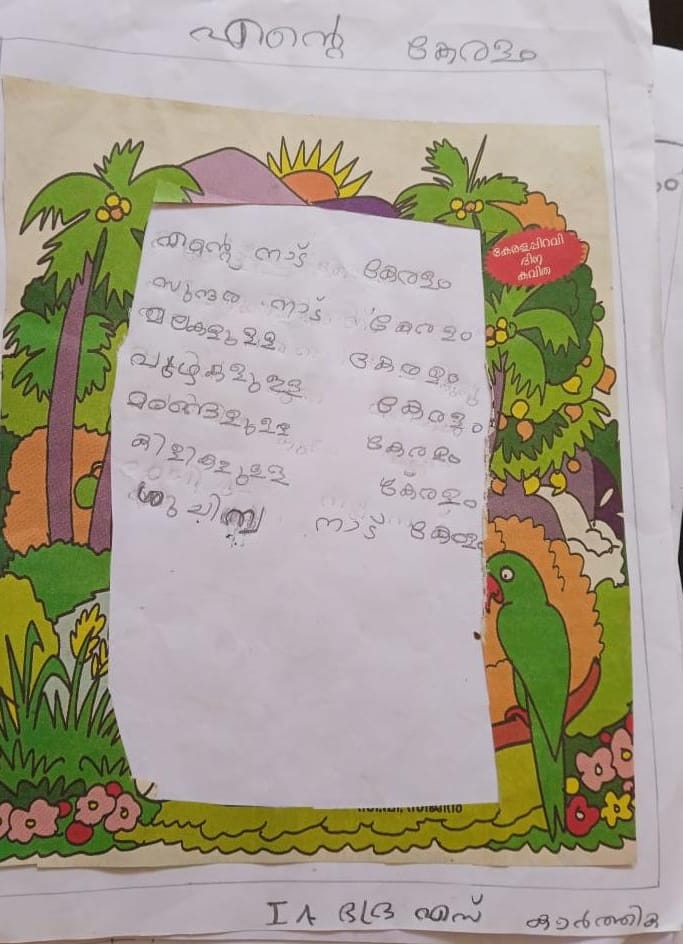 എന്റെ കേരളം
കേരളപ്പിറവി
ദിന
കവിത
എന്റെ നാട് കേരളം
സുന്ദര നാട് കേരളം
മലകളുള്ള കേരളം
പുഴകളുള്ള കേരളം
മരങ്ങളുള്ള കേരളം
കിളികളുള്ള കേരളം
നാട് കേരളം
I A എസ് കാർത്തിക